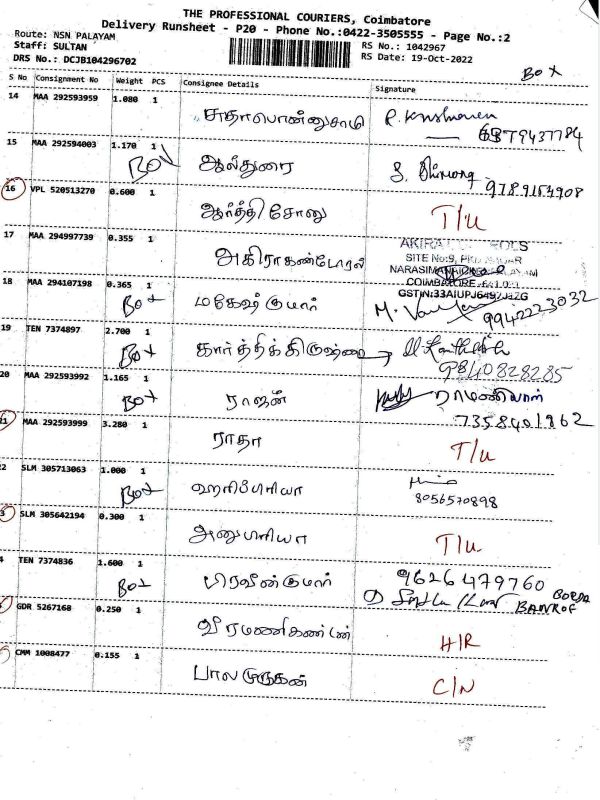 THE PROFESSIONAL COURIERS, Coimbatore
Delivery Runsheet - P20 - Phone No.:0422-3505555 - Page No.:2
Route: NSN PALAYAM
Staff: SULTAN
RS No.: 1042967
DRS No.: DCJB104296702
RS Date: 19-Oct-2022
Box
S No Consignment No Weight PCS Consignee Details Signature
14 MAA 292593959 1.080 1 சுதாபொன்னுசாமி
15 MAA 292594003 1.170 1 Box ஆல்துரை 9789154908
16 VPL 520513270 0.600 1 ஆர்த்தி சோனு T/u
17 MAA 294997739 0.355 1 அகிராகண்ட்ரோல்
SITE No:9,
NARASIMANAICKENPALAYAM
COIMBATORE
18 MAA 294107198 0.365 1 Box மகேஷ் குமார் 9942223032
19 TEN 7374897 2.700 1 Box கார்த்திக் கிருஷ்ணா 9840828285
20 MAA 293593992 1.165 1 Box ராஜன் 7358401962
21 MAA 292593999 3.280 1 ராதா T/u
2 SLM 305713063 1.000 1 Box ஹரிப்ரியா 8056570898
3 SLM 305642194 0.300 1 அனுப்ரியா T/u
4 TEN 7374836 1.600 1 Box பிரவீன்குமார் 9626479760
GDR 5267168 0.250 1 வீரமணிகண்டன் H/R
CMM 1008477 0.155 1 பாலமுருகன் C/N